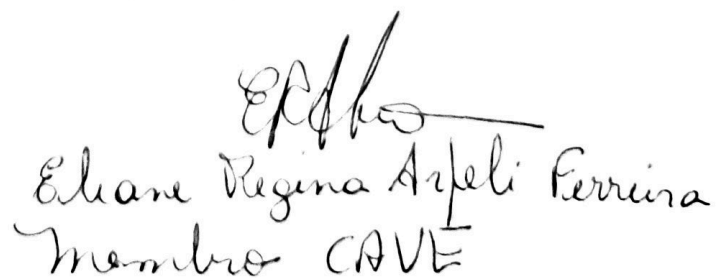 Eliane Regina Arfeli Ferreira
Membro CAVE